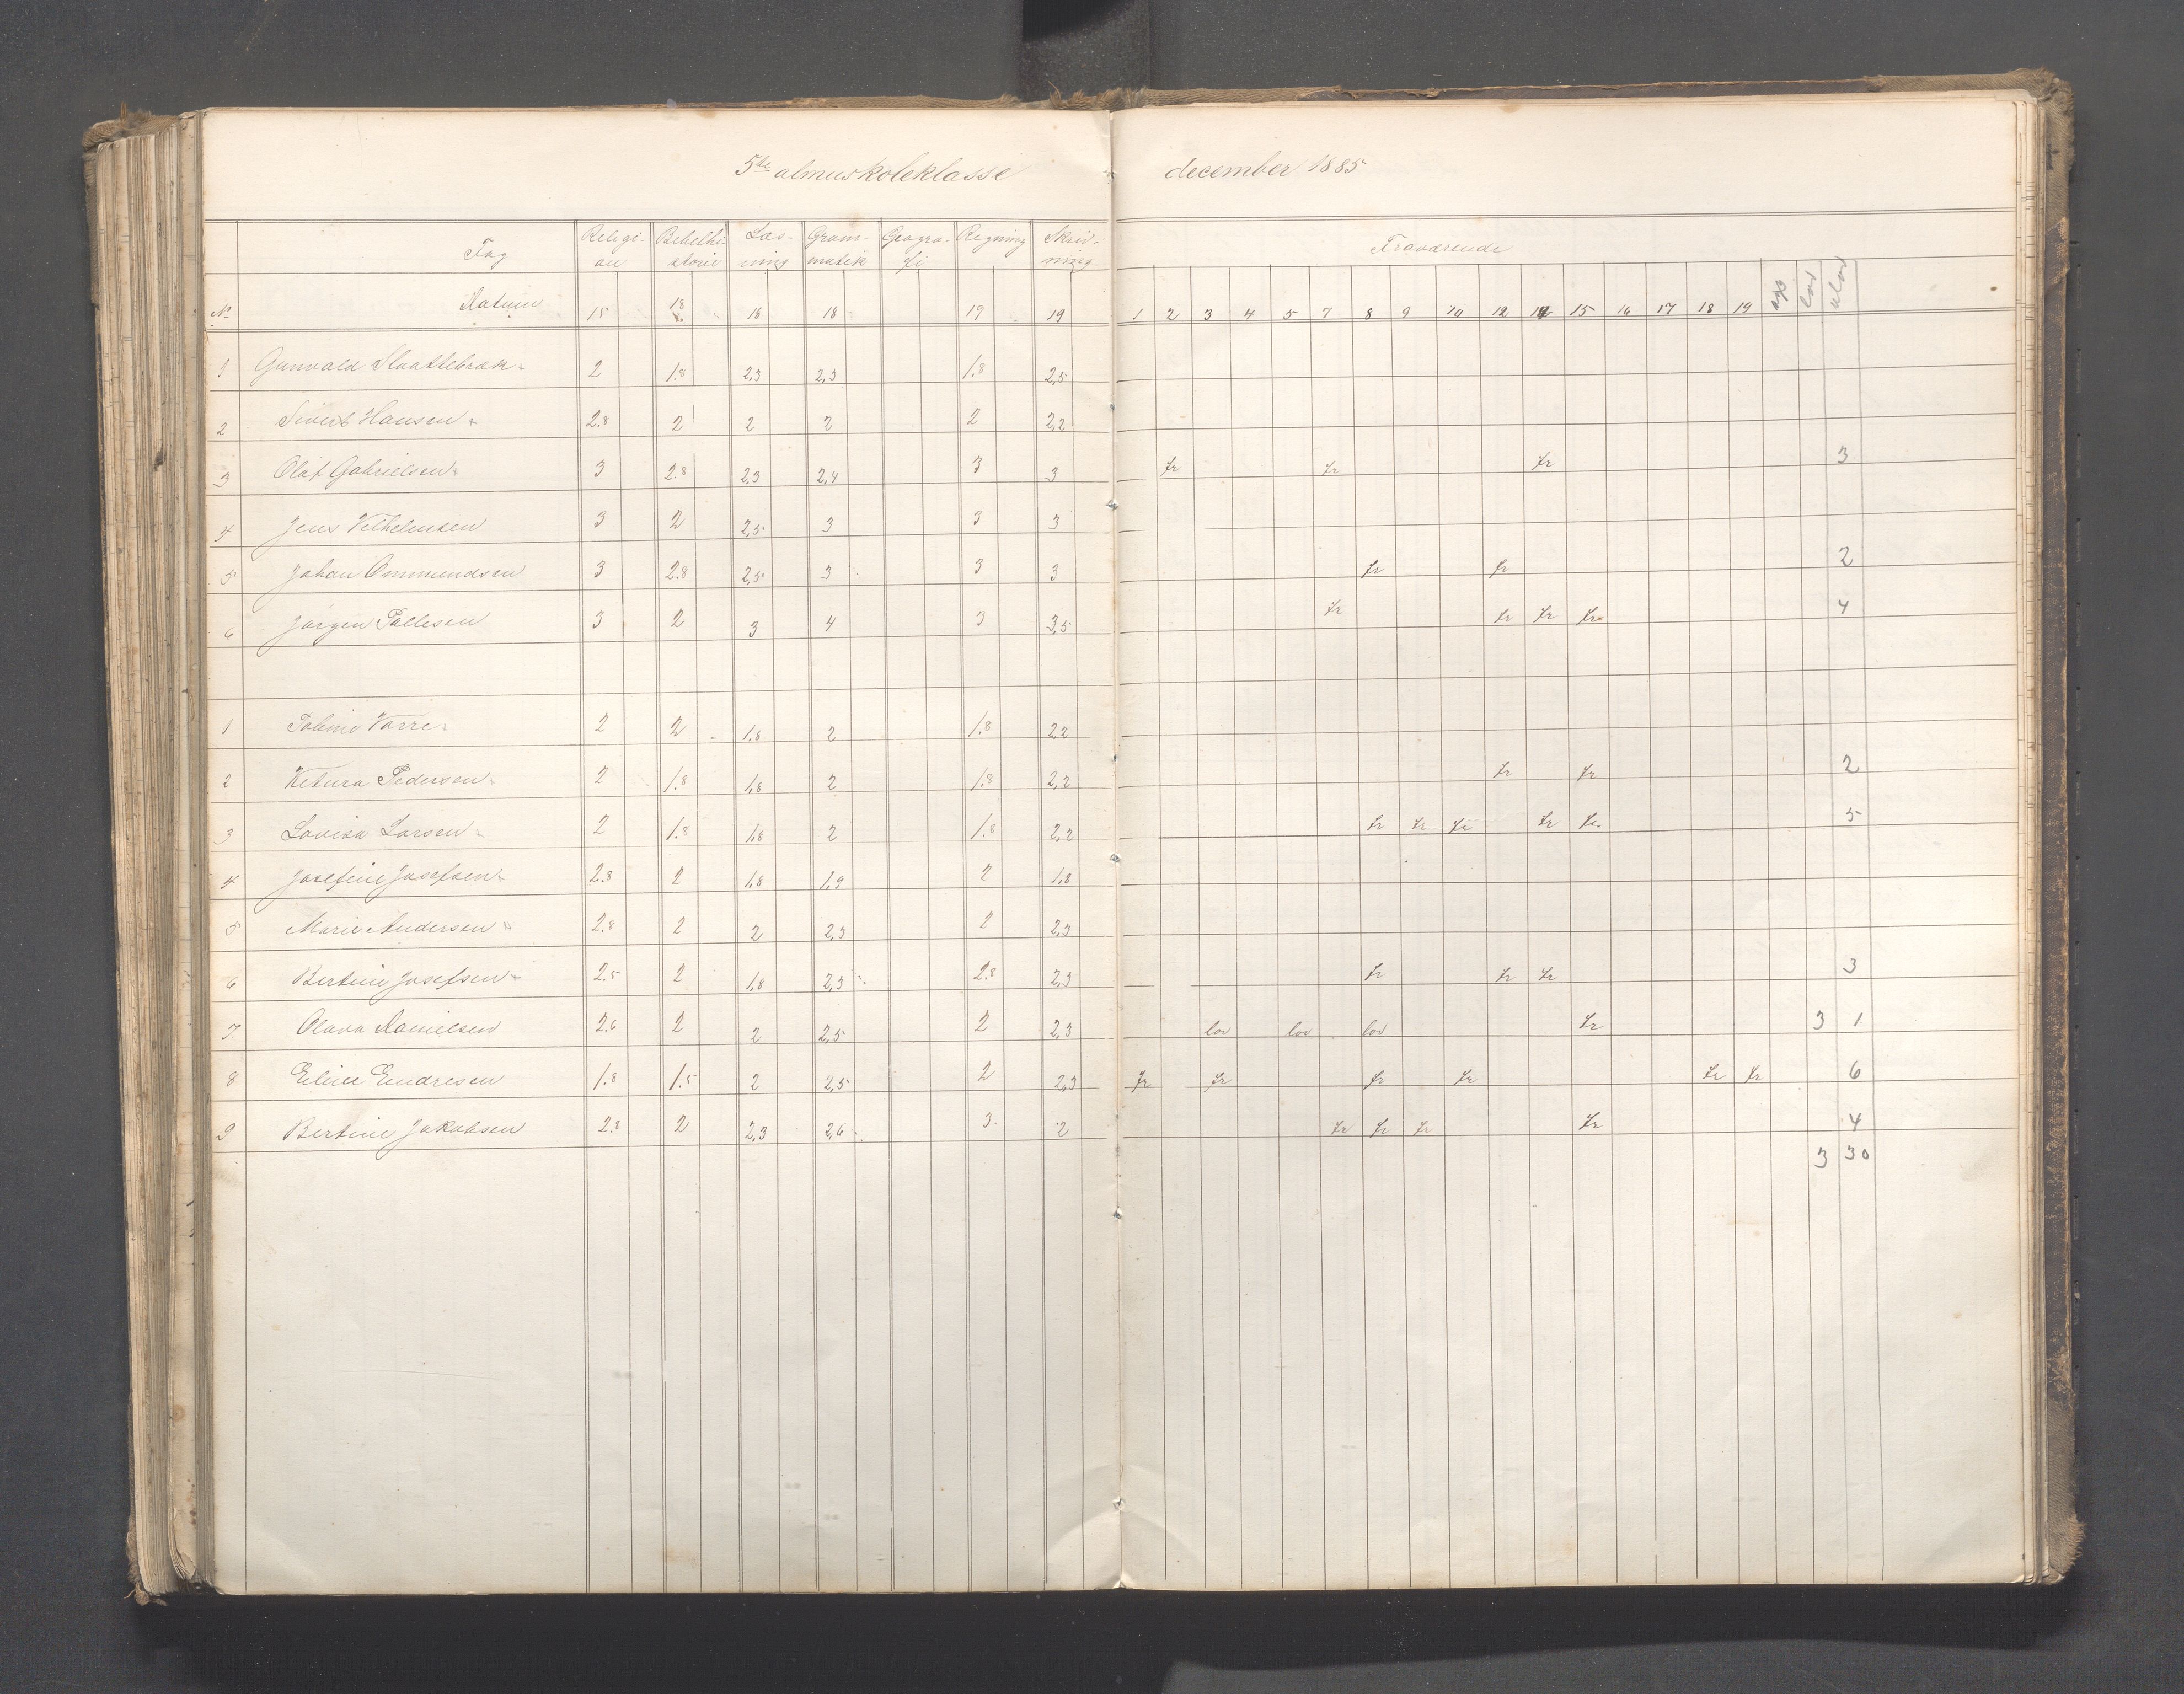 5te almuskoleklasse december 1885
Fag Religi- Bibelhi- Læs- Gram- Geogra- Regning Skriv- Fraværende
on storie ning matik fi ning
No Datum 15 18 18 18 19 19 1 2 3 4 5 7 8 9 10 12 14 15 16 17 18 19 lov ulov
1 Gunvald 2 1.8 2,3 2,3 1.8 2,5
2 Sivert Hansen 2.8 2 2 2 2 2,2
3 Olaf Gabrielsen 3 2.8 2,3 2,4 3 3 fr fr fr 3
4 Jens Vilhelmsen 3 2 2,5 3 3 3
5 Johan Ommundsen 3 2.8 2,5 3 3 3 fr fr 2
6 Jørgen Pallesen 3 2 3 4 3 3,5 fr fr fr fr 4
1 Varre 2 2 1,8 2 1.8 2,2
2 Ketura Pedersen 2 1.8 1,8 2 1.8 2,2 fr fr 2
3 Lovisa Larsen 2 1.8 1,8 2 1.8 2,2 fr fr fr fr fr 5
4 Josefine Josefsen 2.8 2 1,8 1,9 2 1,8
5 Marie Andersen 2.8 2 2 2,3 2 2,3
6 Bertine Josefsen 2.5 2 1,8 2,3 2.8 2,3 fr fr fr 3
7 Olava Danielsen 2.6 2 2 2,5 2 2,3 lov lov lov fr 3 1
8 Eline Endresen 1.8 1.5 2 2,5 2 2,3 fr fr fr fr fr fr 6
9 Bertine Jakobsen 2.8 2 2,3 2,6 3 2 fr fr fr fr 4
3 30